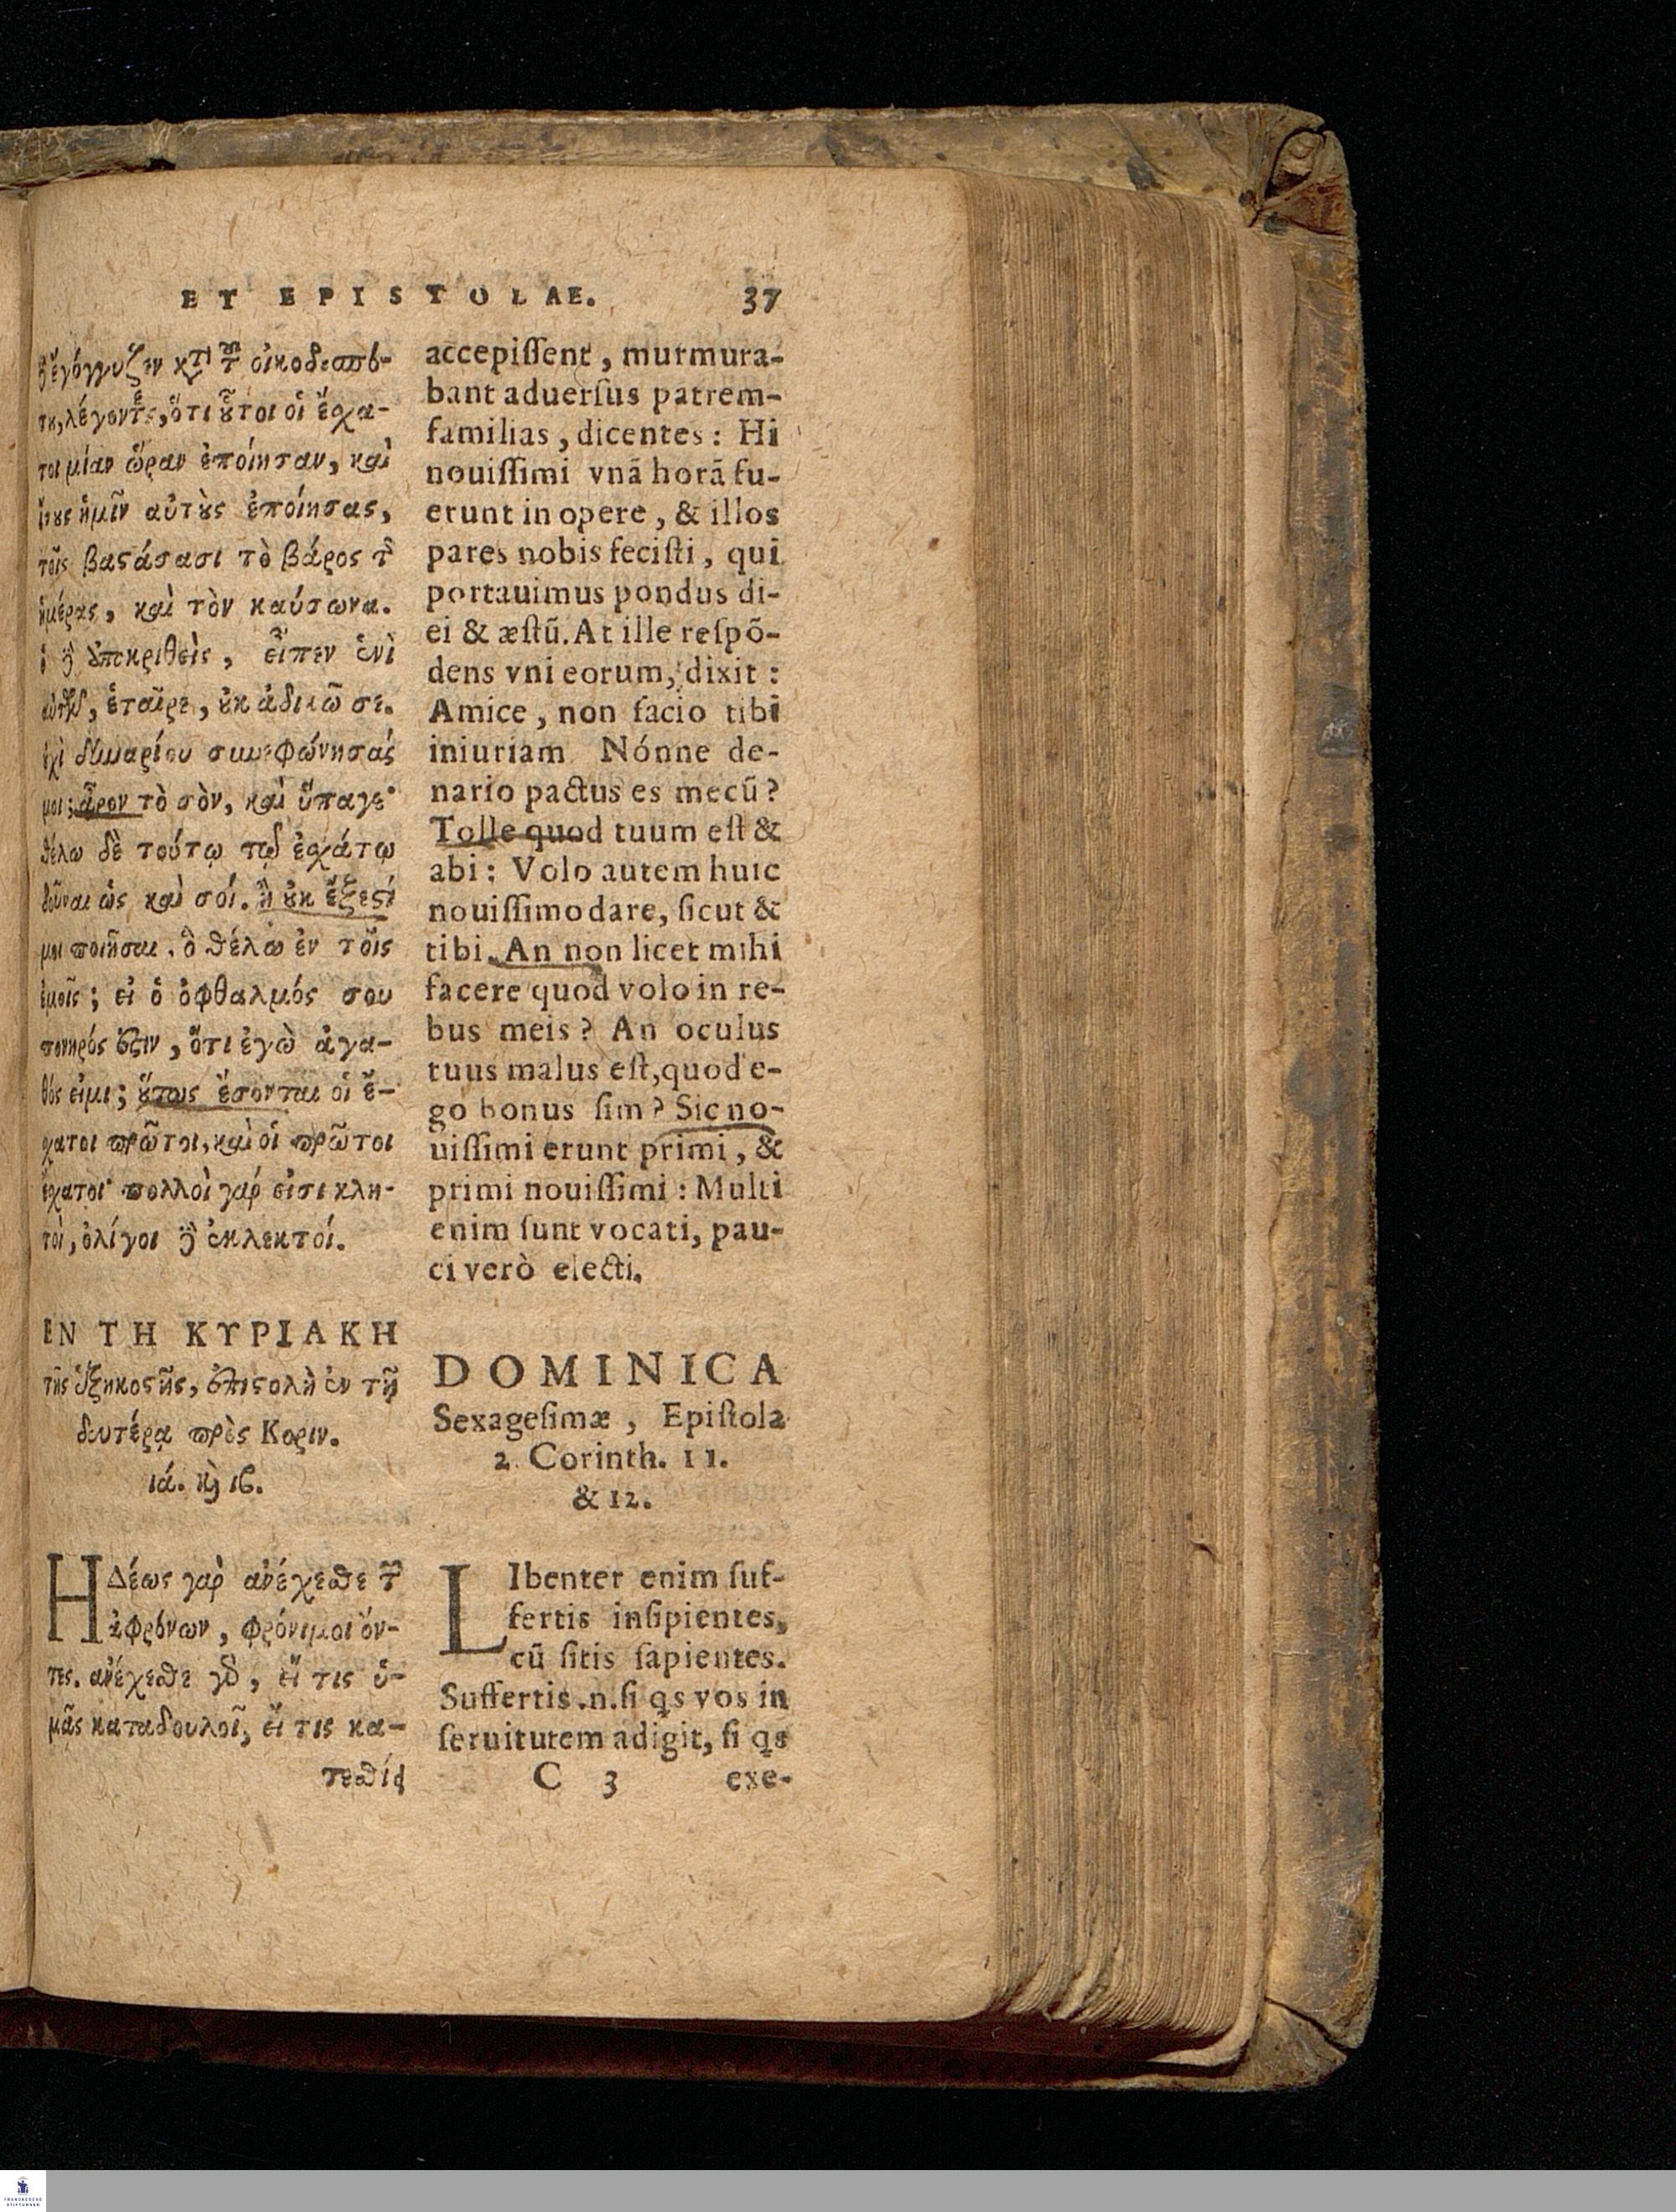 ET EPISTOLAE. 37
ἐγόγγυζον κτ τ οἰκοδεσπό-
τυ, λέγοντες, ὅτι ὗτοι οἱ ἔχα-
τοι μίαν ὥραν ἐποίησαν, καὶ
ἴσυς ἡμῖν αὐτὺς ἐποίησας,
τοῖς βαϛάσασι τὸ βάρος τ
ἡμέρας, καὶ τὸν καύσωνα.
ὁ ἀποκριθεὶς, εἶπεν ἑνὶ
ἑταῖρε, ὐκ ἀδικῶ σε.
ὐχὶ δηναρίου συνεφώνησάς
μοι; ἆρον τὸ σὸν, καὶ ὕπαγε·
θέλω δὲ τούτῳ τῷ ἐχάτῳ
δοῦναι ὡς καὶ σοί. ἢ ὐκ ἔξεϛί
μοι ποιῆσαι, ὃ θέλω ἐν τοῖς
ἐμοῖς; εἰ ὁ ὀφθαλμός σου
πονηρός ἐϛιν, ὅτι ἐγὼ ἀγα-
θός εἰμι; ὕτως ἔσονται οἱ ἔ-
χατοι πρῶτοι, καὶ οἱ πρῶτοι
ἔχατοι· πολλοὶ γάρ εἰσι κλη-
τοὶ, ὀλίγοι δ ἐκλεκτοί.
ΕΝ ΤΗ ΚΥΡΙΑΚΗ
τῆς ἑξηκοϛῆς, ἐπιϛολὴ ἐν τῇ
δευτέρᾳ πρὸς Κοριν.
ιά. κὶ ιϐ.
ΗΔέως γὰρ ἀνέχεσθε τ
ἀφρόνων, φρόνιμοι ὄν-
τες. ἀνέχεσθε γὸ, εἴ τις ὑ-
μᾶς καταδουλοῖ, εἴ τις κα-
τεσθίει
accepissent, murmura-
bant aduersus patrem-
familias, dicentes: Hi
nouissimi vnā horā fu-
erunt in opere, & illos
pares nobis fecisti, qui
portauimus pondus di-
ei & æstũ. At ille respō-
dens vni eorum, dixit:
Amice, non facio tibi
iniuriam Nónne de-
nario pactus es mecũ?
Tolle quod tuum est &
abi: Volo autem huic
nouissimo dare, sicut &
tibi. An non licet mihi
facere quod volo in re-
bus meis? An oculus
tuus malus est, quod e-
go bonus sim? Sic no-
uissimi erunt primi, &
primi nouissimi: Multi
enim sunt vocati, pau-
ci verò electi.
DOMINICA
Sexagesimæ, Epistola
2. Corinth. 11.
& 12.
LIbenter enim suf-
fertis insipientes,
cũ sitis sapientes.
Suffertis .n. si qs vos in
seruitutem adigit, si qs
C 3 exe-
FRANCKESCHE
STIFTUNGEN